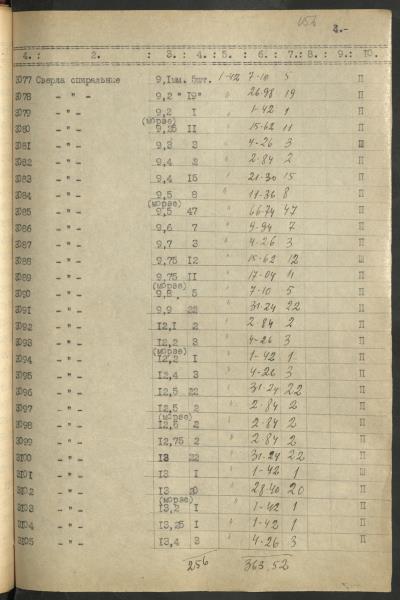 3.-
4. : 2. : 3. : 4. : 5. : 6. : 7. : 8. : 9. : 10.
3077 Сверла спиральные 9,1мм. 5шт. 1-42 7-10 5 П
3078 - " - 9,2 " 19" " 26-98 19 П
3079 - " - 9,2 I " 1-42 1 П
(морзе)
3080 - " - 9,25 II " 15-62 11 П
3081 - " - 9,3 3 " 4-26 3 Ш
3082 - " - 9,4 2 " 2-84 2 П
3083 - " - 9,4 15 " 21-30 15 П
3084 - " - 9,5 8 " 11-36 8 П
(морзе)
3085 - " - 9,5 47 " 66-74 47 П
3086 - " - 9,6 7 " 9-94 7 П
3087 - " - 9,7 3 " 4-26 3 П
3088 - " - 9,75 I2 " 15-62 12 Ш
3089 - " - 9,75 II " 17-04 11 П
(морзе)
3090 - " - 9,8 5 " 7-10 5 П
3091 - " - 9,9 22 " 31-24 22 П
3092 - " - I2,I 2 " 2-84 2 П
3093 - " - I2,2 3 " 4-26 3 П
(морзе)
3094 - " - I2,2 I " 1-42 1 П
3095 - " - I2,4 3 " 4-26 3 П
3096 - " - I2,5 22 " 31-24 22 П
3097 - " - I2,5 2 " 2-84 2 П
(морзе)
3098 - " - I2,6 2 " 2-84 2 П
3099 - " - I2,75 2 " 2-84 2 П
3100 - " - I3 22 " 31-24 22 П
3101 - " - I3 I " 1-42 1 Ш
3102 - " - I3 20 " 28-40 20 П
(морзе)
3103 - " - I3,2 I " 1-42 1 П
3104 - " - I3,25 I " 1-42 1 П
3105 - " - I3,4 3 " 4-26 3 П
256 363,52